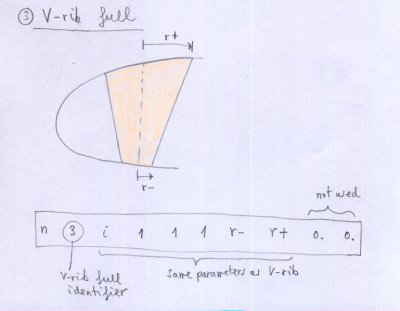 ③ V-rib full
r+
r-
not used
n ③ i 1 1 1 r- r+ 0. 0.
V-rib full
identifier
same parameters as V-rib